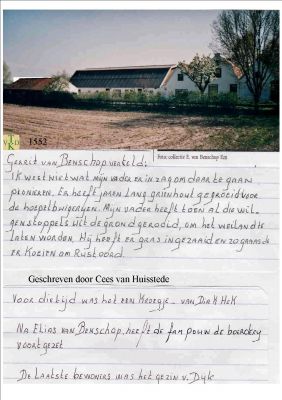 VTKD
1552
Foto: collectie E. van Benschop Ezn
Gerrit van Benschop verteld:
Ik weet niet wat mijn vader er in zag om daar te gaan
pionieren. Er heeft jaren lang grienhout gegroeid voor
de hoepelbuigerijen. Mijn vader heeft toen al die wil-
genstoppels uit de grond gerooid, om het weiland te
laten worden. Hij heeft er gras ingezaaid en zo graasde
er koeien om Rustoord.
Geschreven door Cees van Huisstede
Voor die tijd was het een kroegje van Dirk Hek
Na Elias van Benschop, heeft de fam Pouw de boerdery
voortgezet
De laatste bewoners was het gezin v. Dyk